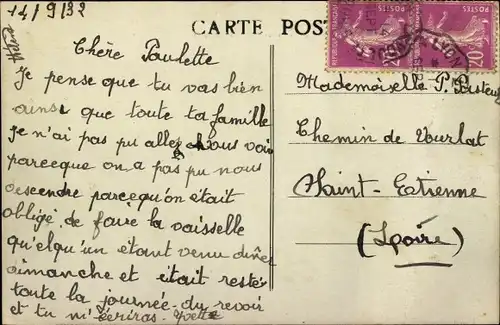 14/9/32
CARTE POS
Chère Paulette
Je pense que tu vas bien
ainsi que toute ta famille
je n'ai pas pu aller vous voir
parceque on a pas pu nous
descendre parcequ'on était
obligé de faire la vaisselle
qu'elqu'un étant venu dîner
dimanche et était resté
toute la journée du revoir
et tu m'écriras Yvette
Mademoiselle P.
Chemin de Vourlat
Saint-Etienne
(Loire)
POSTES
LYON